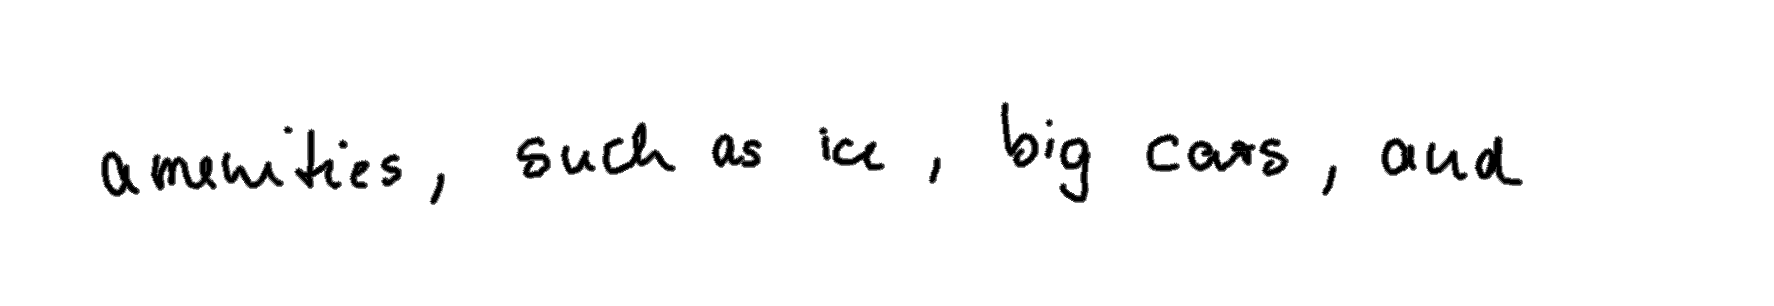 amenities, such as ice, big cars, and